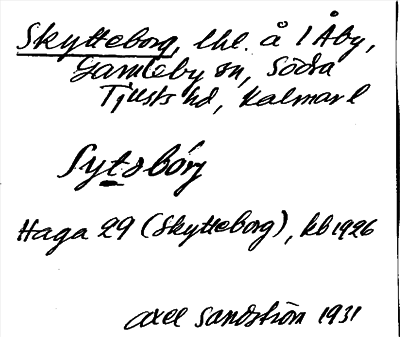 Skytteborg, lhl. å 1 Åby,
Gamleby sn, Södra
Tjusts hd, Kalmar l
Sytsbórj
Haga 29 (Skytteborg), kb 1926
Axel Sandström 1931